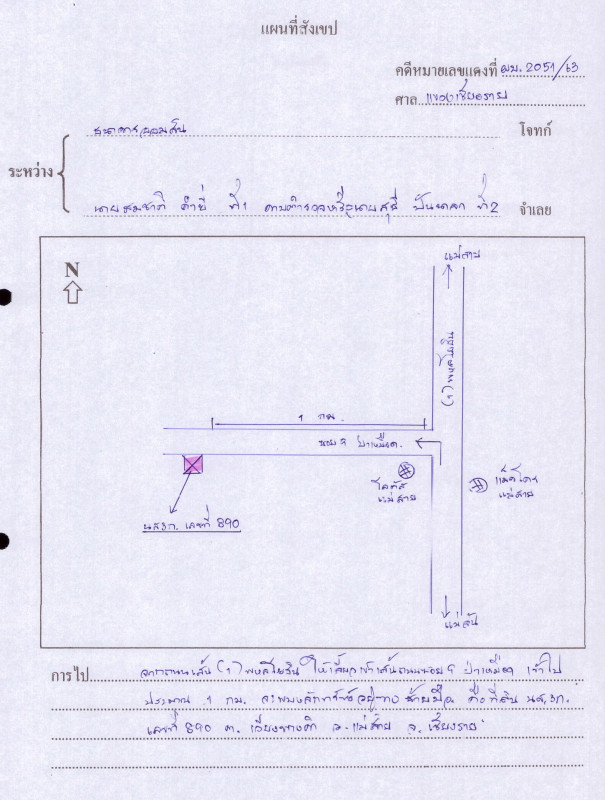 แผนที่สังเขป
คดีหมายเลขแดงที่ ผบ. 2051/63
ศาล แขวงเชียงราย
ธนาคารออมสิน โจทก์
ระหว่าง
นายสมชาติ คำยี่ ที่ 1 ดาบตำรวจหรือนายสุธี ปันนคลา ที่ 2 จำเลย
N
แม่สาย
(1) พหลโยธิน
1 กม.
ซอย 9 ป่าเหมือด
โลตัส
แม่สาย
แม็คโคร
แม่สาย
น.ส.3ก. เลขที่ 890
แม่จัน
การไป จากถนนเส้น (1) พหลโยธิน ให้เลี้ยวเข้าเส้นถนนซอย 9 ป่าเหมือด เข้าไป
ประมาณ 1 กม. จะพบหลักทรัพย์อยู่ทางซ้ายมือ คือที่ดิน น.ส.3ก.
เลขที่ 890 ต. เวียงพางคำ อ. แม่สาย จ. เชียงราย